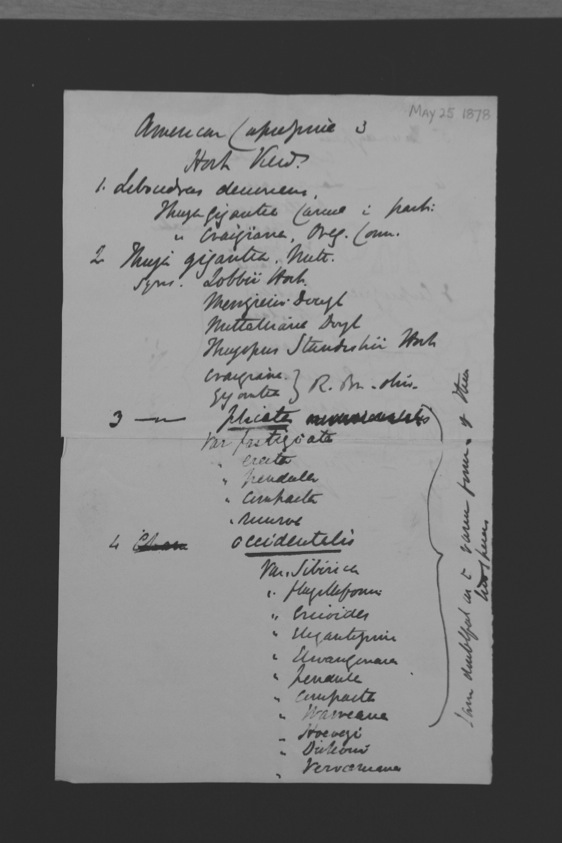 May 25 1878
American Cupressineae 3
Hort. Veitch
1. Libocedrus decurrens.
Thuja gigantea Carriere i parts.
" Craigiana, Oreg. Com.
2 Thuja gigantea. Nutt.
Syns. Lobbii Hort.
Menziesii Dougl
Dougl
Thujopsis Standishii Hort
Craigiana
gigantea } R. Bn.
3 — plicata
Var fastigiata
" erecta
" pendula
" compacta
" minor
4 Cham occidentalis
Var. Sibirica
" flagelliformis
" ericoides
" elegantissima
" Elwangeriana
" pendula
" compacta
" Wareana
" Hoveyi
" Dicksoni
" Vervaeneana
I am doubtful as to various forms of these two species